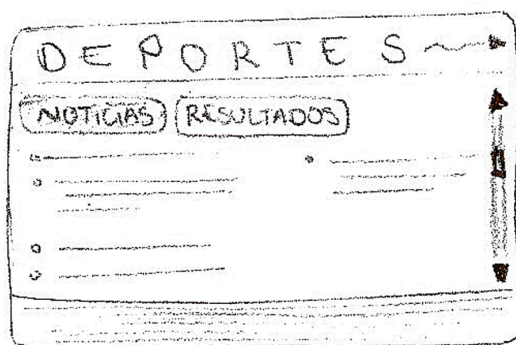 DEPORTES
NOTICIAS RESULTADOS